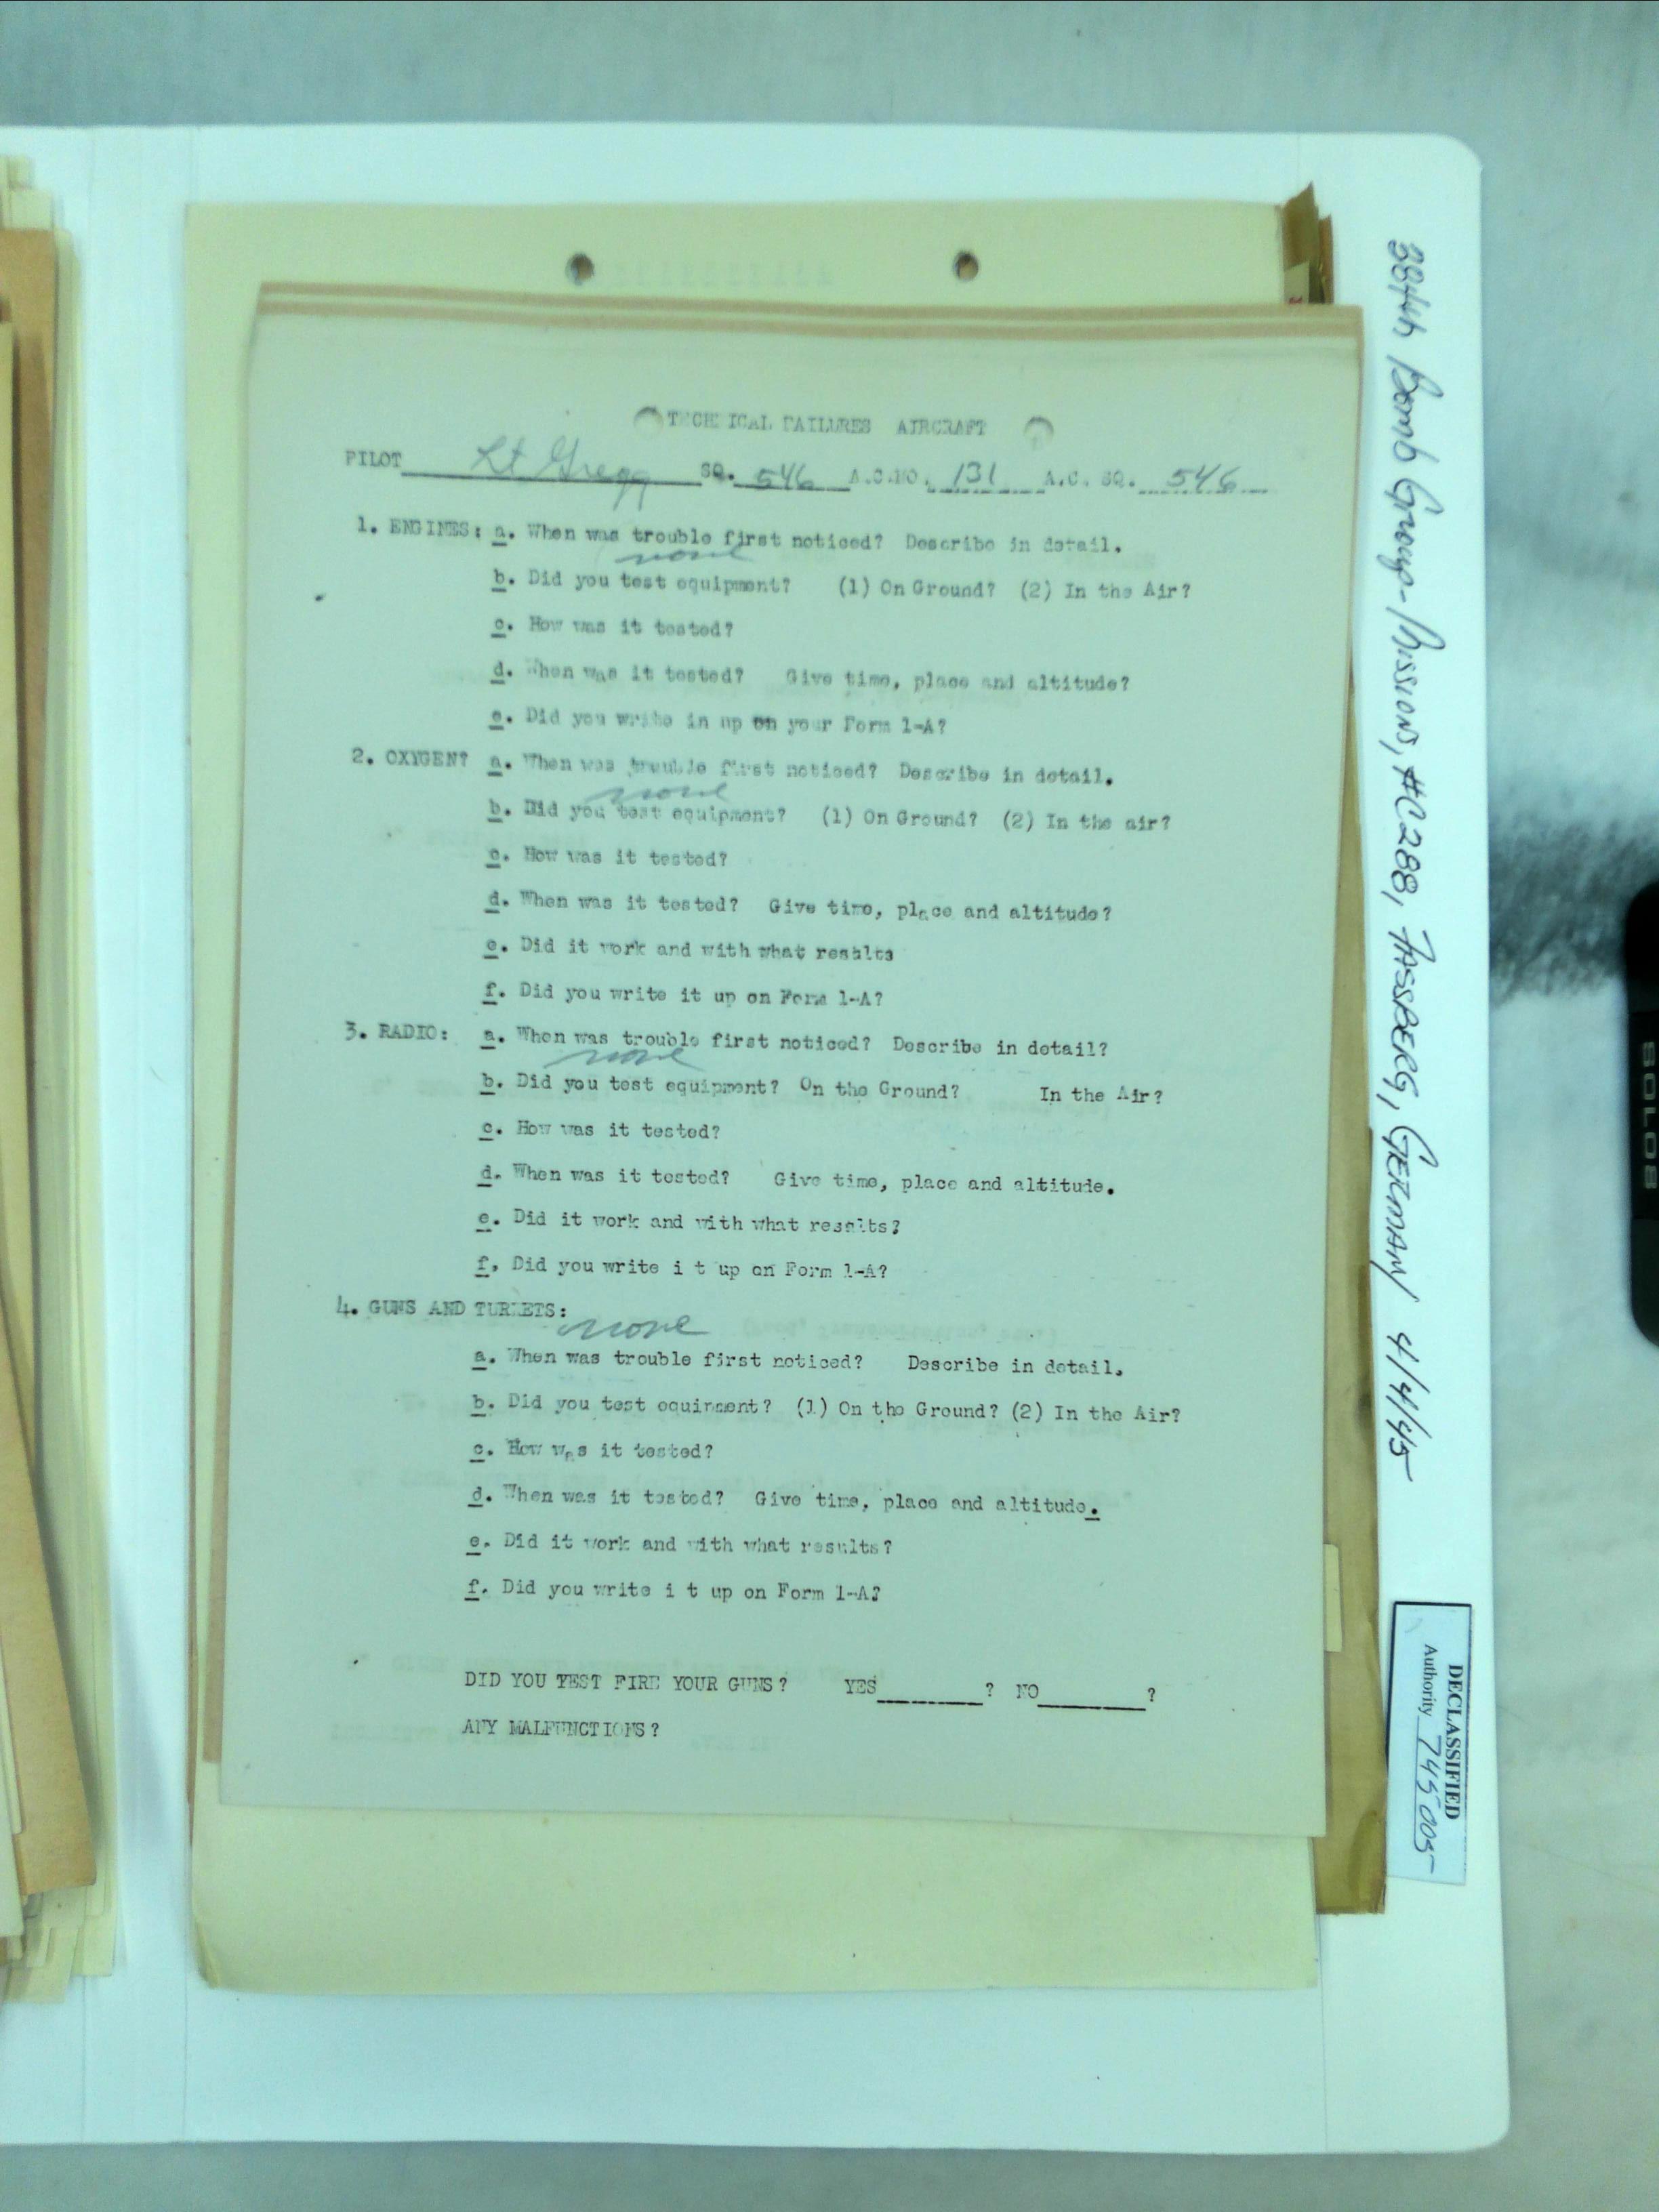 TECHNICAL FAILURES AIRCRAFT
PILOT Lt Gregg SQ. 546 A.C.NO. 131 A.C. SQ. 546
1. ENGINES: a. When was trouble first noticed? Describe in detail.
none
b. Did you test equipment? (1) On Ground? (2) In the Air?
c. How was it tested?
d. When was it tested? Give time, place and altitude?
e. Did you write in up on your Form 1-A?
2. OXYGEN? a. When was trouble first noticed? Describe in detail.
none
b. Did you test equipment? (1) On Ground? (2) In the air?
c. How was it tested?
d. When was it tested? Give time, place and altitude?
e. Did it work and with what results
f. Did you write it up on Form 1-A?
3. RADIO: a. When was trouble first noticed? Describe in detail?
none
b. Did you test equipment? On the Ground? In the Air?
c. How was it tested?
d. When was it tested? Give time, place and altitude.
e. Did it work and with what results?
f. Did you write i t up on Form 1-A?
4. GUNS AND TURRETS:
none
a. When was trouble first noticed? Describe in detail.
b. Did you test equipment? (1) On the Ground? (2) In the Air?
c. How was it tested?
d. When was it tested? Give time, place and altitude.
e. Did it work and with what results?
f. Did you write i t up on Form 1-A?
DID YOU TEST FIRE YOUR GUNS? YES ? NO ?
ANY MALFUNCTIONS?
384th Bomb Group-Missions, #C288, FASSBERG, GERMANY 4/4/45
DECLASSIFIED
Authority 745005
SOLO8